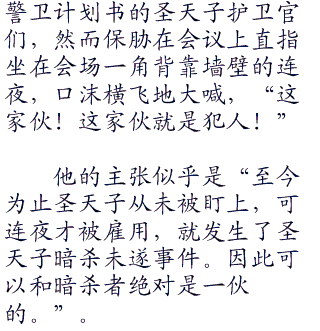 警卫计划书的圣天子护卫官
们，然而保胁在会议上直指
坐在会场一角背靠墙壁的连
夜，口沫横飞地大喊，“这
家伙！这家伙就是犯人！”
他的主张似乎是“至今
为止圣天子从未被盯上，可
连夜才被雇用，就发生了圣
天子暗杀未遂事件。因此可
以和暗杀者绝对是一伙
的。”。